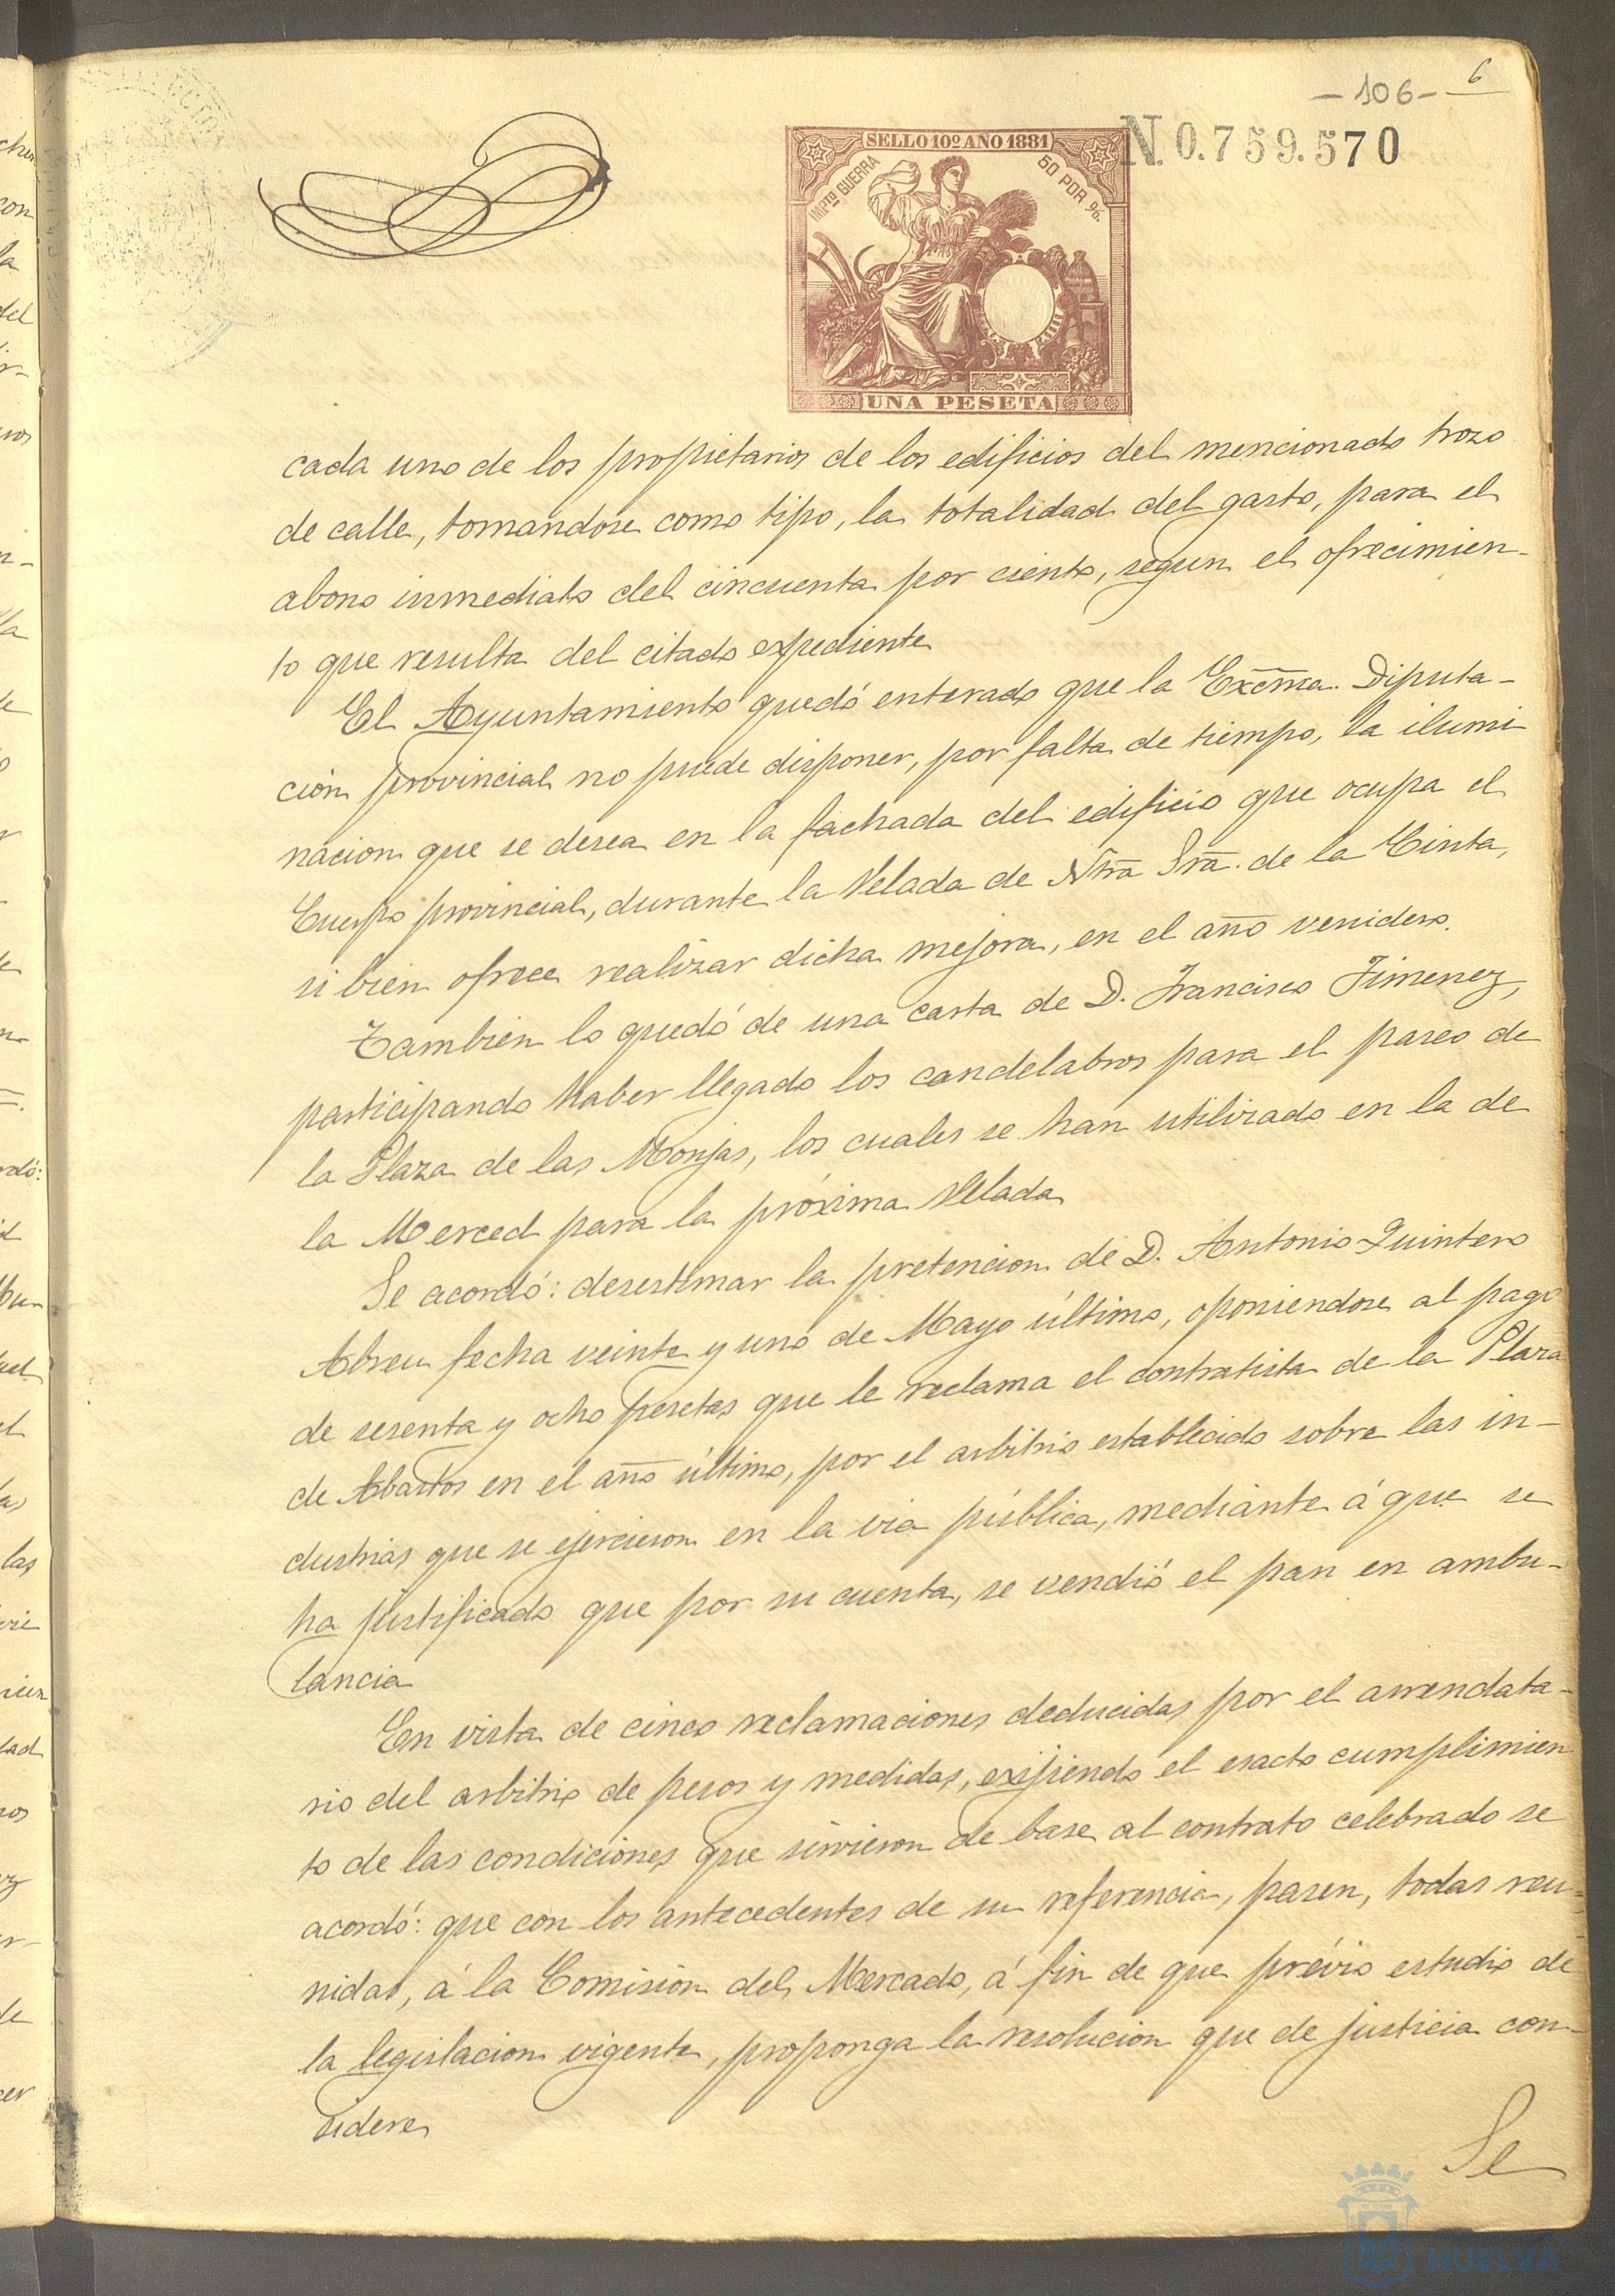 - 106 - 6
N. 0.759.570
SELLO 10º AÑO 1881
IMPTO GUERRA
50 POR %.
UNA PESETA
cada uno de los propietarios de los edificios del mencionado trozo
de calle, tomandose como tipo, la totalidad del gasto, para el
abono inmediato del cincuenta por ciento, segun el ofrecimien-
to que resulta del citado expediente
El Ayuntamiento quedó enterado que la Excma. Diputa-
ción provincial no puede disponer, por falta de tiempo, la ilumi
nacion que se desea en la fachada del edificio que ocupa el
Cuerpo provincial, durante la Velada de Ntra Sra. de la Cinta,
si bien ofrece realizar dicha mejora, en el año venidero.
Tambien lo quedó de una carta de D. Francisco Jimenez,
participando haber llegado los candelabros para el paseo de
la Plaza de las Monjas, los cuales se han utilizado en la de
la Merced para la próxima Velada
Se acordó: desestimar la pretencion de D. Antonio Quintero
Abreu fecha veinte y uno de Mayo último, oponiendose al pago
de sesenta y ocho pesetas que le reclama el contratista de la Plaza
de Abastos en el año último, por el arbitrio establecido sobre las in-
dustrias que se ejercieron en la via pública, mediante á que se
ha justificado que por su cuenta, se vendió el pan en ambu-
lancia
En vista de cinco reclamaciones deducidas por el arrendata-
rio del arbitrio de pesos y medidas, exijiendo el esacto cumplimien
to de las condiciones que sirvieron de base al contrato celebrado se
acordó: que con los antecedentes de su referencia, pasen, todas reu-
nidas, á la Comisión del Mercado, á fin de que prévio estudio de
la legislacion vigente, proponga la resolucion que de justicia con-
sidere
Se
HUELVA